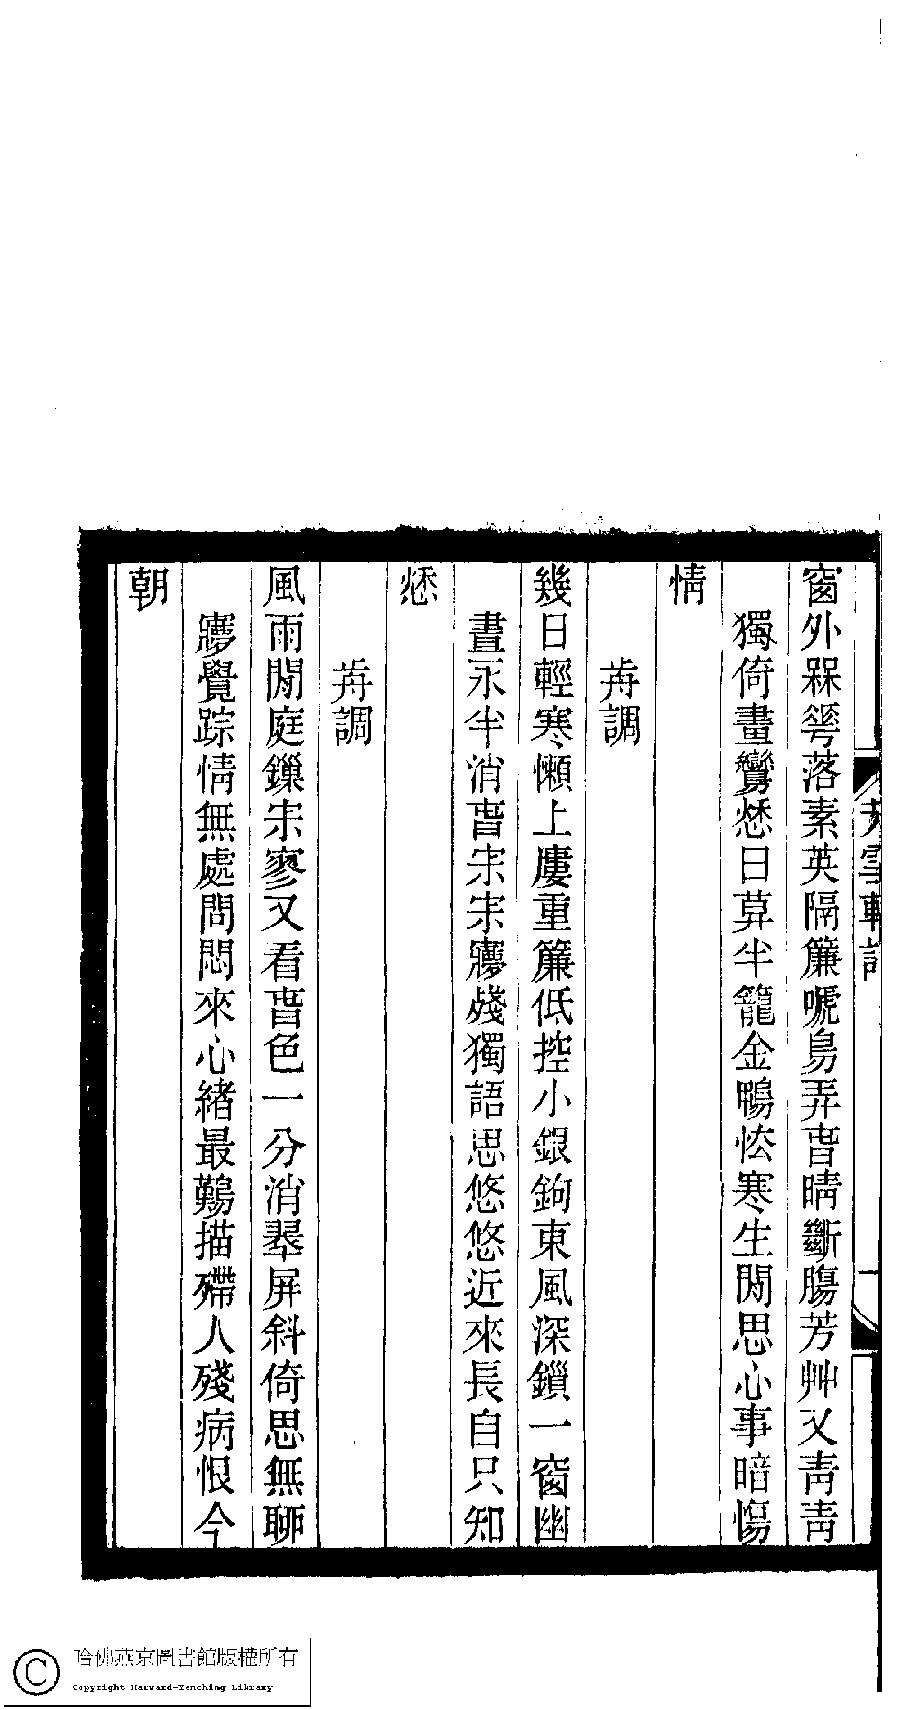 窗外槑𠌶落素英隔簾嗁鳥弄萅晴斷腸芳艸又靑靑
獨倚畫鸞愁日莫半籠金鴨怯寒生閒思心事暗慯
情
歬調
幾日輕寒懶上廔重簾低控小銀鉤東風深鎖一窗幽
晝永半消萅宋宋㝱殘獨語思悠悠近來長自只知
愁
歬調
風雨閒庭鏁宋寥又看萅色一分消翠屏斜倚思無聊
㝱覺踪情無處問悶來心緒最難描殢人殘病恨今
朝
芳雪軒詞
一
哈佛燕京圖書館版權所有
Copyright Harvard-Yenching Library